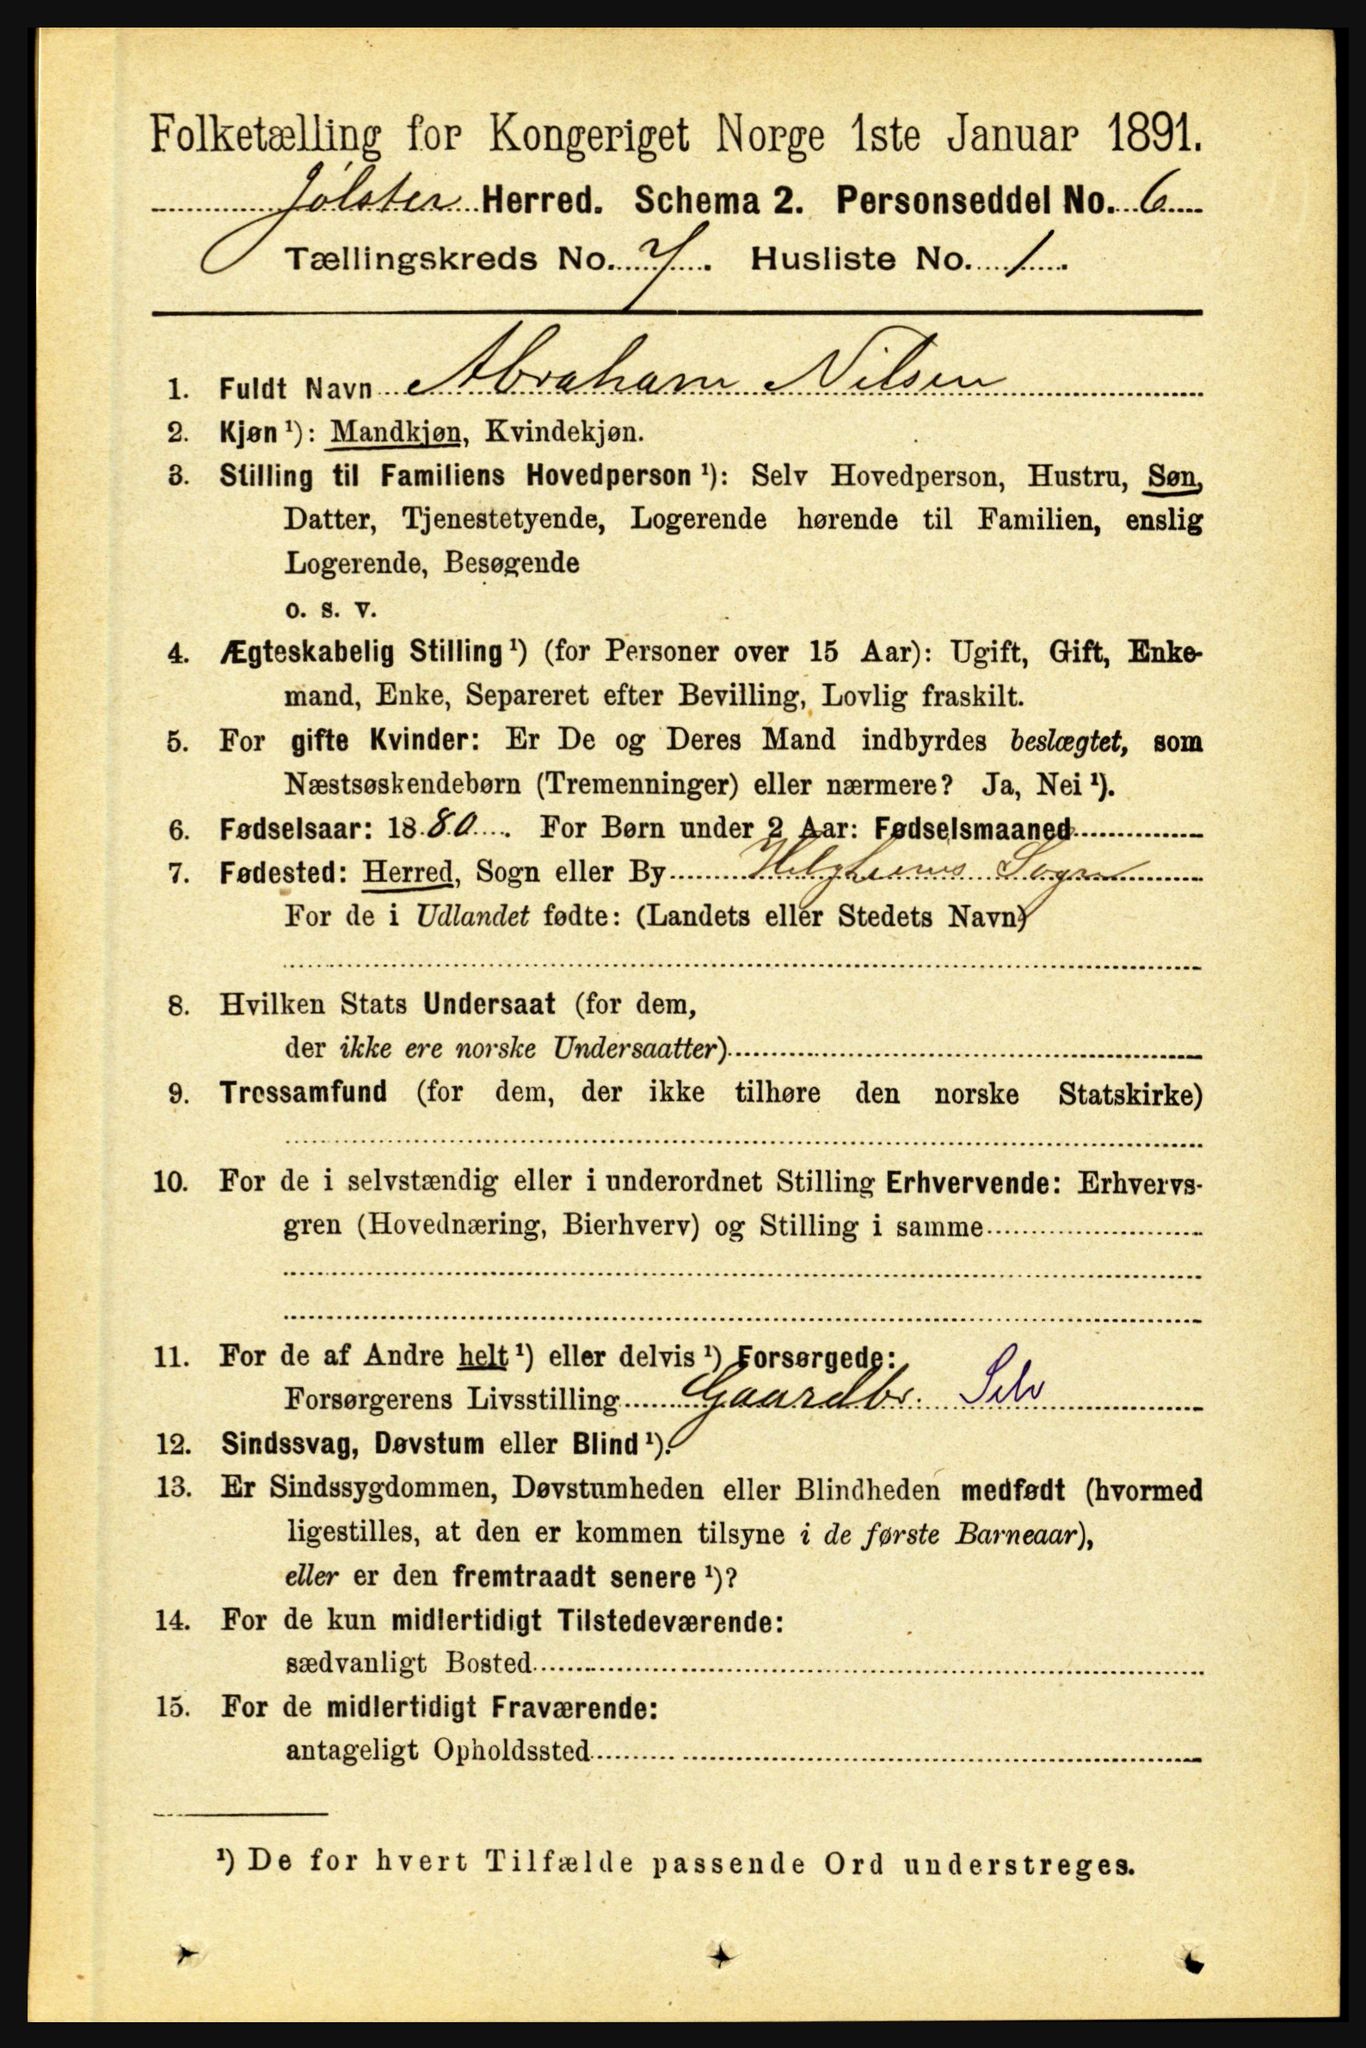 Folketælling for Kongeriget Norge 1ste Januar 1891.
Jølster Herred. Schema 2. Personseddel No. 6
Tællingskreds No. 7. Husliste No. 1.
1. Fuldt Navn Abraham Nilsen
2. Kjøn ¹): Mandkjøn, Kvindekjøn.
3. Stilling til Familiens Hovedperson ¹): Selv Hovedperson, Hustru, Søn,
Datter, Tjenestetyende, Logerende hørende til Familien, enslig
Logerende, Besøgende
o. s. v.
4. Ægteskabelig Stilling ¹) (for Personer over 15 Aar): Ugift, Gift, Enke-
mand, Enke, Separeret efter Bevilling, Lovlig fraskilt.
5. For gifte Kvinder: Er De og Deres Mand indbyrdes beslægtet, som
Næstsøskendebørn (Tremenninger) eller nærmere? Ja, Nei ¹).
6. Fødselsaar: 1880. For Børn under 2 Aar: Fødselsmaaned
7. Fødested: Herred, Sogn eller By Helgheims Sogn
For de i Udlandet fødte: (Landets eller Stedets Navn)
8. Hvilken Stats Undersaat (for dem,
der ikke ere norske Undersaatter)
9. Trossamfund (for dem, der ikke tilhøre den norske Statskirke)
10. For de i selvstændig eller i underordnet Stilling Erhvervende: Erhvervs-
gren (Hovednæring, Bierhverv) og Stilling i samme
11. For de af Andre helt ¹) eller delvis ¹) Forsørgede:
Forsørgerens Livsstilling Gaardbr. Selv
12. Sindssvag, Døvstum eller Blind ¹).
13. Er Sindssygdommen, Døvstumheden eller Blindheden medfødt (hvormed
ligestilles, at den er kommen tilsyne i de første Barneaar),
eller er den fremtraadt senere ¹)?
14. For de kun midlertidigt Tilstedeværende:
sædvanligt Bosted
15. For de midlertidigt Fraværende:
antageligt Opholdssted
¹) De for hvert Tilfælde passende Ord understreges.